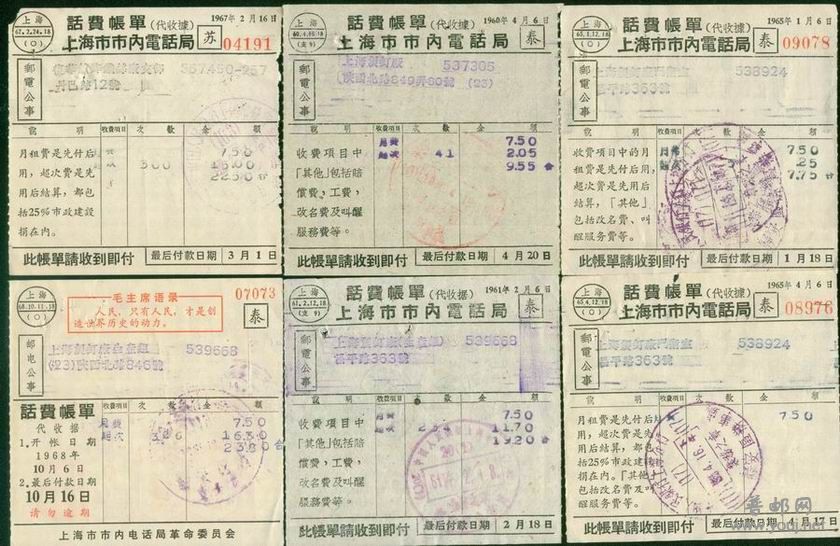 上海
67.2.24.18
(○)
話費帳單(代收據)
上海市市內電話局
1967年2月16日
苏
04191
郵電公事
567450-257
丹巴路12號
說明
收費項目
次數
金額
月租費是先付后
用，超次費是先
用后結算，都包
括25%市政建設
捐在內。
月費 7.50
300 15.00
22.50
此帳單請收到即付
最后付款日期
3月1日
上海
60.4.16.18
(支9)
話費帳單(代收據)
上海市市內電話局
1960年4月6日
泰
郵電公事
537305
陝西北路849弄80號 (23)
說明
收費項目
次數
金額
收費項目中
「其他」包括賠
償費，工費，
改名費及叫醒
服務費等。
月費 7.50
超次 41 2.05
9.55
此帳單請收到即付
最后付款日期
4月20日
上海
65.1.12.18
(○)
話費帳單(代收據)
上海市市內電話局
1965年1月6日
泰
09078
郵電公事
538924
昌平路363號
說明
收費項目
次數
金額
收費項目中的月
租費是先付后用，
超次費是先用后
結算，「其他」
包括改名費、叫
醒服务費等。
7.50
5 .25
7.75
此帳單請收到即付
最后付款日期
1月18日
上海
68.10.11.18
(○)
毛主席语录
人民，只有人民，才是创
造世界历史的动力。
07073
泰
邮电公事
上海製釘廠生產組 539668
(23)陝西北路846號
話費帳單
代收据
1.开帐日期
1968年
10月6日
2.最后付款日期
10月16日
请勿逾期
收費項目
次數
金額
月費 7.50
超次 326 16.30
23.80
上海市市内电话局革命委员会
上海
61.2.12.18
(支9)
話費帳單(代收据)
上海市市內電話局
1961年2月6日
泰
郵電公事
上海製釘廠(生產組) 539668
昌平路363號
說明
收費項目
次數
金額
收費項目中
「其他」包括賠
償費，工費，
改名費及叫醒
服務費等。
月費 7.50
超次 234 11.70
19.20
此帳單請收到即付
最后付款日期
2月18日
上海
65.4.12.18
(○)
話費帳單(代收據)
上海市市內電話局
1965年4月6日
泰
08976
郵電公事
538924
昌平路363號
說明
收費項目
次數
金額
月租費是先付后
用，超次費是先
用后結算，都包
括25%市政建設
捐在內。「其他」
包括改名費及叫
醒服务費等。
7.50
此帳單請收到即付
最后付款日期
4月17日
壹邮网
www.yooj.net